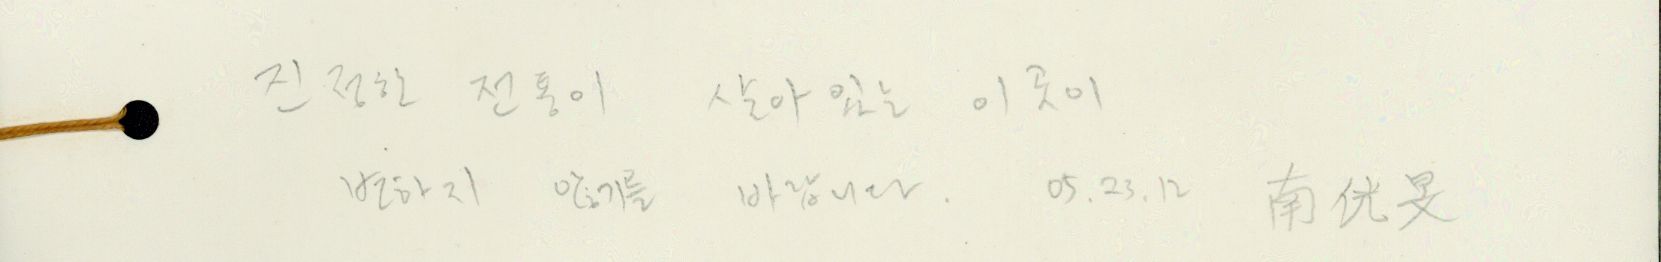 진정한 전통이 살아 있는 이곳이
변하지 않기를 바랍니다. 05.23.12 南侊旻